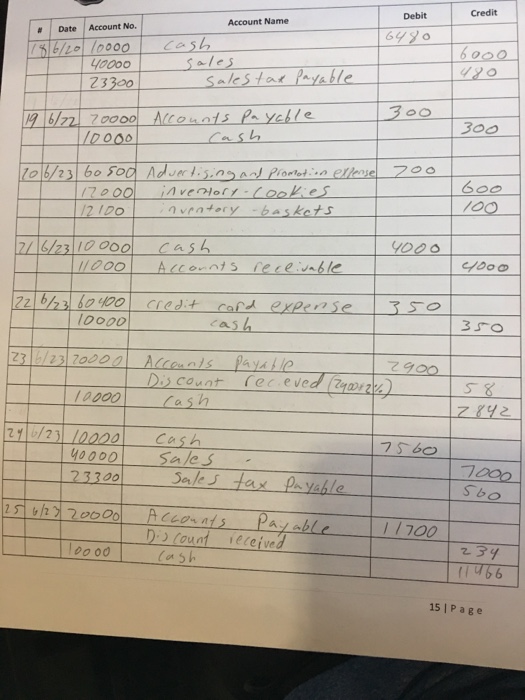 # Date Account No. Account Name Debit Credit
18 6/20 10000 cash 6480
40000 sales 6000
23300 sales tax Payable 480
19 6/22 20000 Accounts Payable 300
10000 cash 300
20 6/23 60500 Advertising and Promotion expense 700
12000 inventory - cookies 600
12100 inventory - baskets 100
21 6/23 10000 cash 4000
11000 Accounts receivable 4000
22 6/23 60400 credit card expense 350
10000 cash 350
23 6/23 20000 Accounts Payable 2900
Discount recieved (2900×2%) 58
10000 cash 2842
24 6/23 10000 cash 7560
40000 sales 7000
23300 Sales tax Payable 560
25 6/23 20000 Accounts Payable 11700
Discount received 234
10000 cash 11466
15 | Page